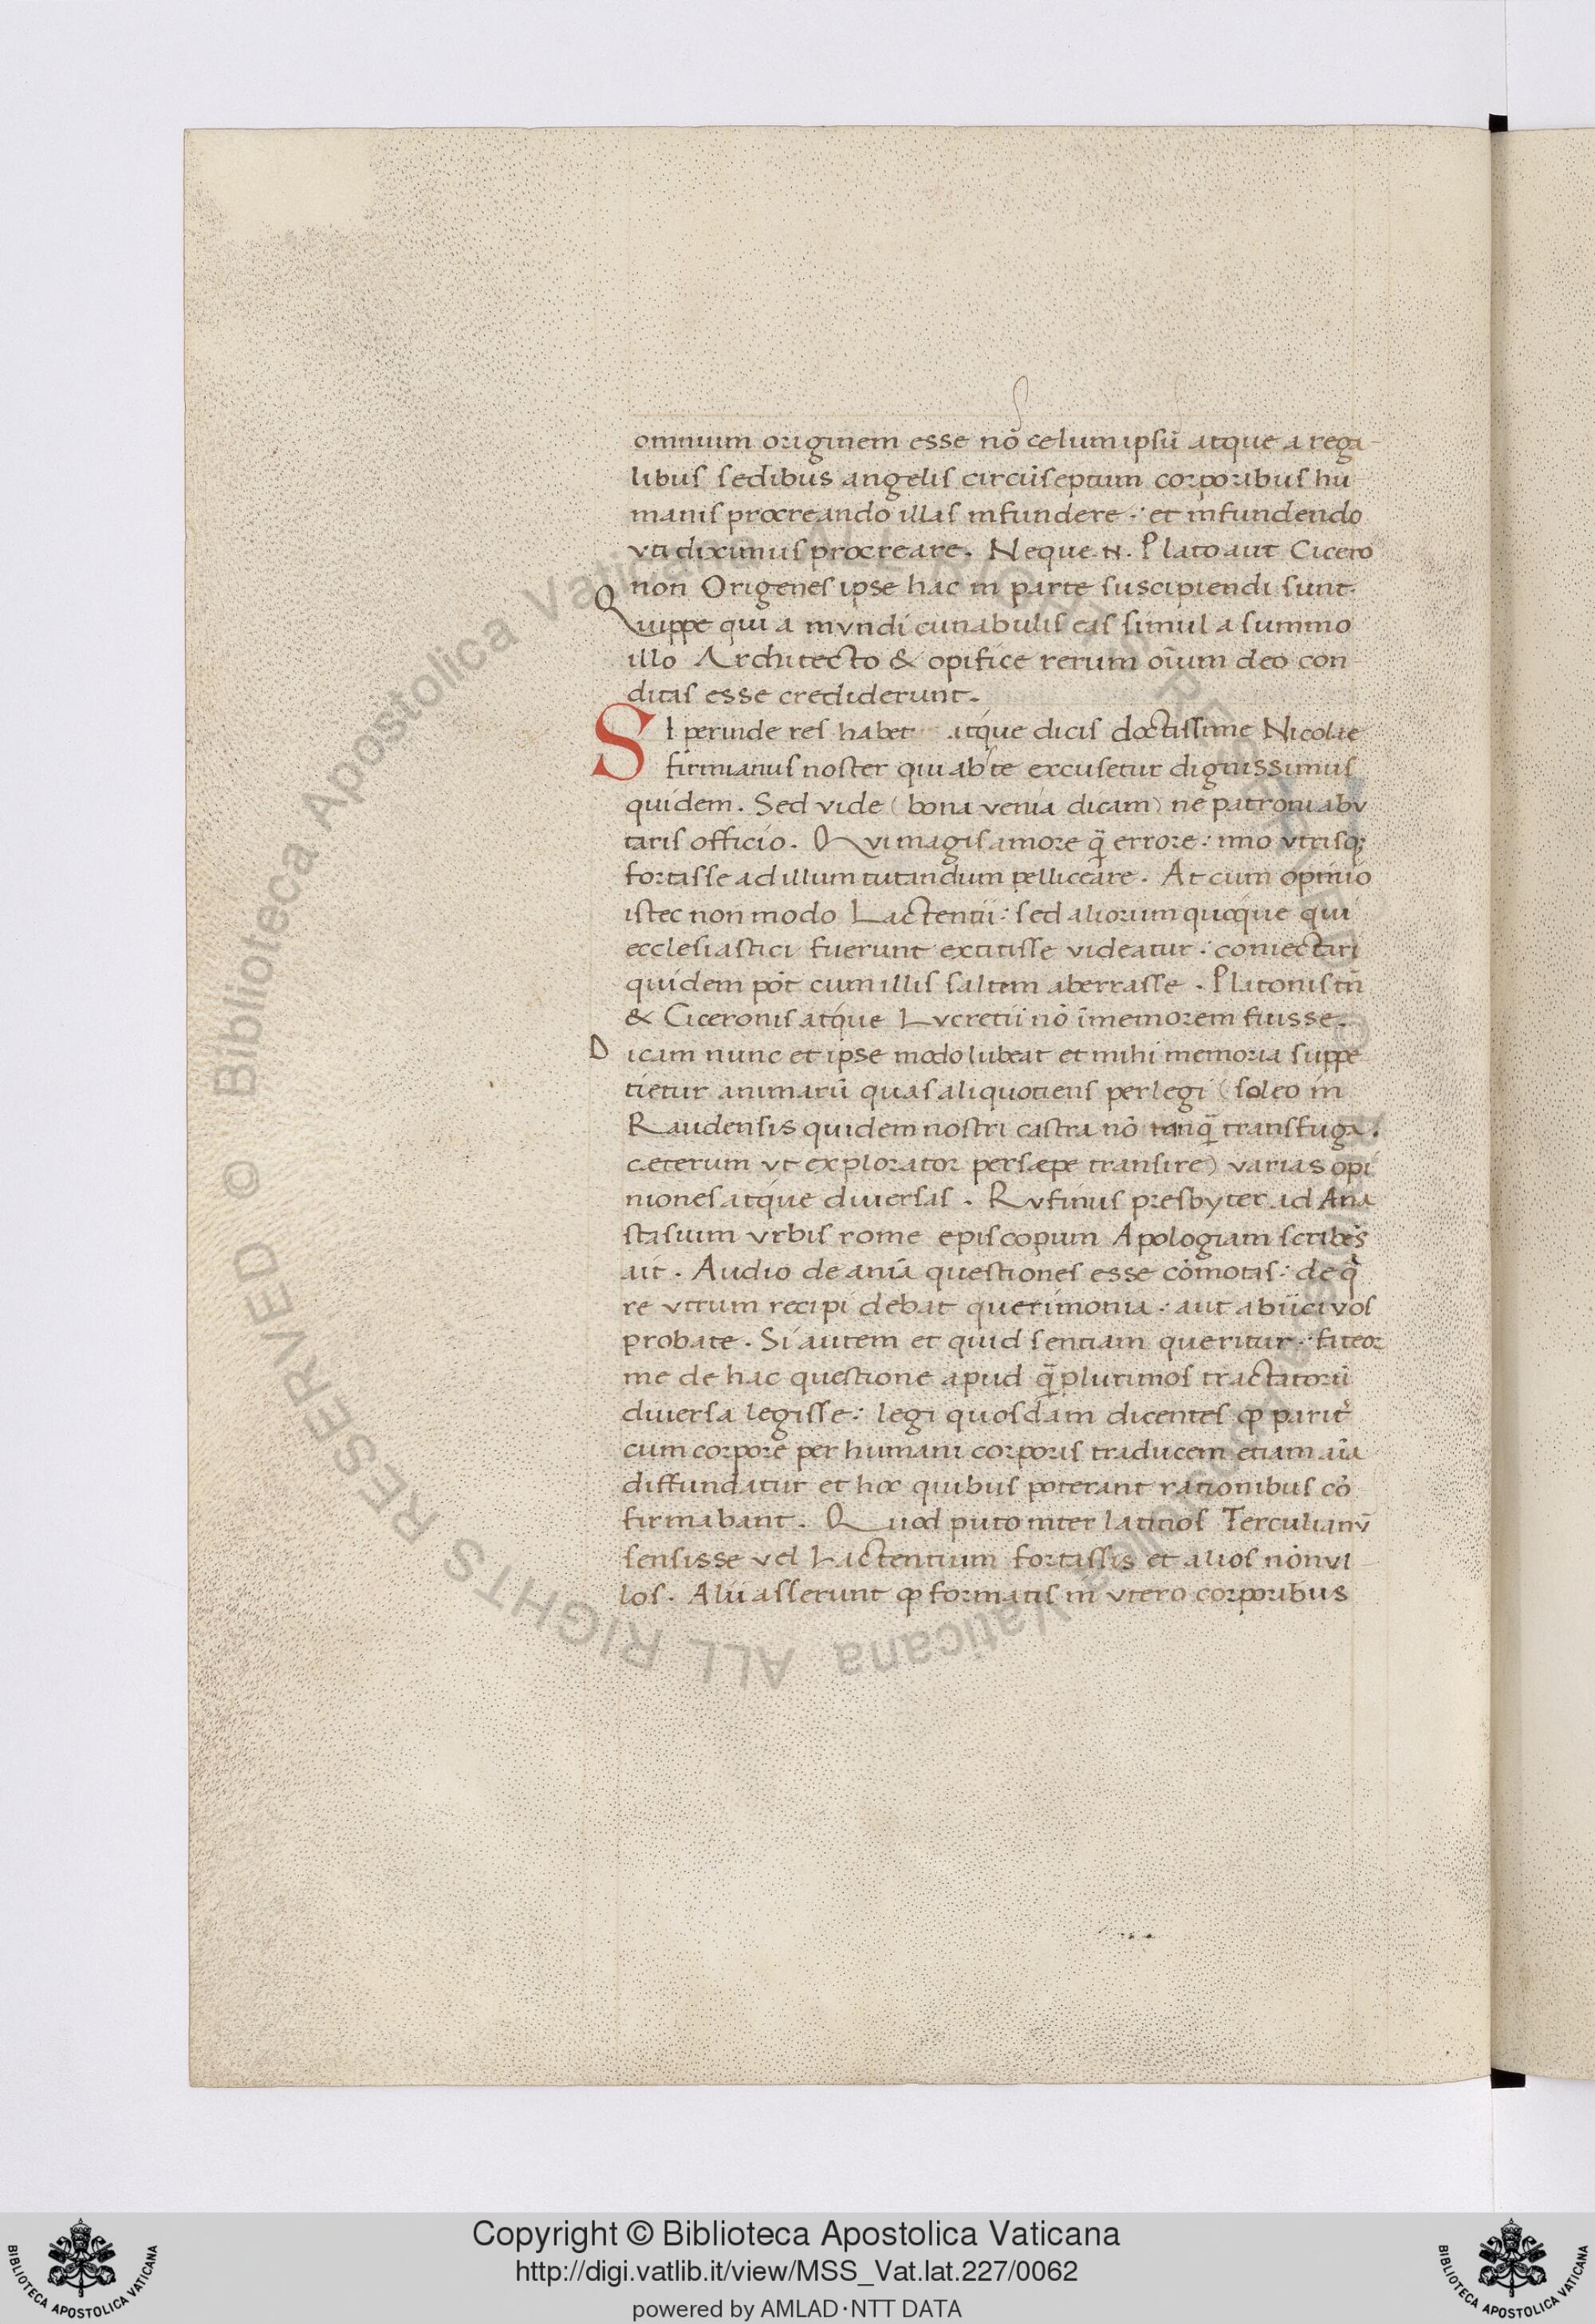 omnium originem esse nō celum ipsū atque a rega-
libus sedibus angelis circūseptum corporibus hu
manis procreando illas infundere : et infundendo
vti diximus procreare. Neque .n. Plato aut Cicero
non Origenes ipse hac in parte suscipiendi sunt.
Quippe qui a mvndi cunabulis eas simul a summo
illo Architecto & opifice rerum oīum deo con-
ditas esse crediderunt.
SI perinde res habet atque dicis doctissime Nicolae
firmianus noster qui abs te excusetur dignissimus
quidem. Sed vide (bona venia dicam) ne patroni abv
taris officio. Qvi magis amore q̄ errore : imo vtrisq;
fortasse ad illum tutandum pelliceare. At cum opinio
istec non modo Lactentii : sed aliorum quoque qui
ecclesiastici fuerunt extitisse videatur : coniectari
quidem pōt cum illis saltem aberrasse. Platonis tn̄
& Ciceronis atque Lvcretii nō īmemorem fuisse.
Dicam nunc et ipse modo lubeat et mihi memoria suppe
tietur animarū quas aliquotiens perlegi (soleo in
Raudensis quidem nostri castra nō tanq̄ transfuga.
cæterum vt explorator persæpe transire) varias opi
niones atque diuersas. Rvfinus presbyter ad Ana
stasium vrbis rome episcopum Apologiam scribēs
ait. Audio de anīa questiones esse cōmotas : de q̄
re vtrum recipi debat querimonia : aut abiici vos
probate. Si autem et quid sentiam queritur : fateor
me de hac questione apud q̄plurimos tractatorū
diuersa legisse : legi quosdam dicentes ꝙ parit̄
cum corpore per humani corporis traducem etiam aīa
diffundatur et hoc quibus poterant rationibus cō
firmabant. Quod puto inter latinos Terculianv̄
sensisse vel Lactentium fortassis et alios nōnvl
los. Alii asserunt ꝙ formatis in vtero corporibus
Copyright © Biblioteca Apostolica Vaticana
http://digi.vatlib.it/view/MSS_Vat.lat.227/0062
powered by AMLAD·NTT DATA
BIBLIOTECA APOSTOLICA VATICANA
BIBLIOTECA APOSTOLICA VATICANA
Biblioteca Apostolica Vaticana ALL RIGHTS RESERVED ©
Biblioteca Apostolica Vaticana ALL RIGHTS RESERVED ©